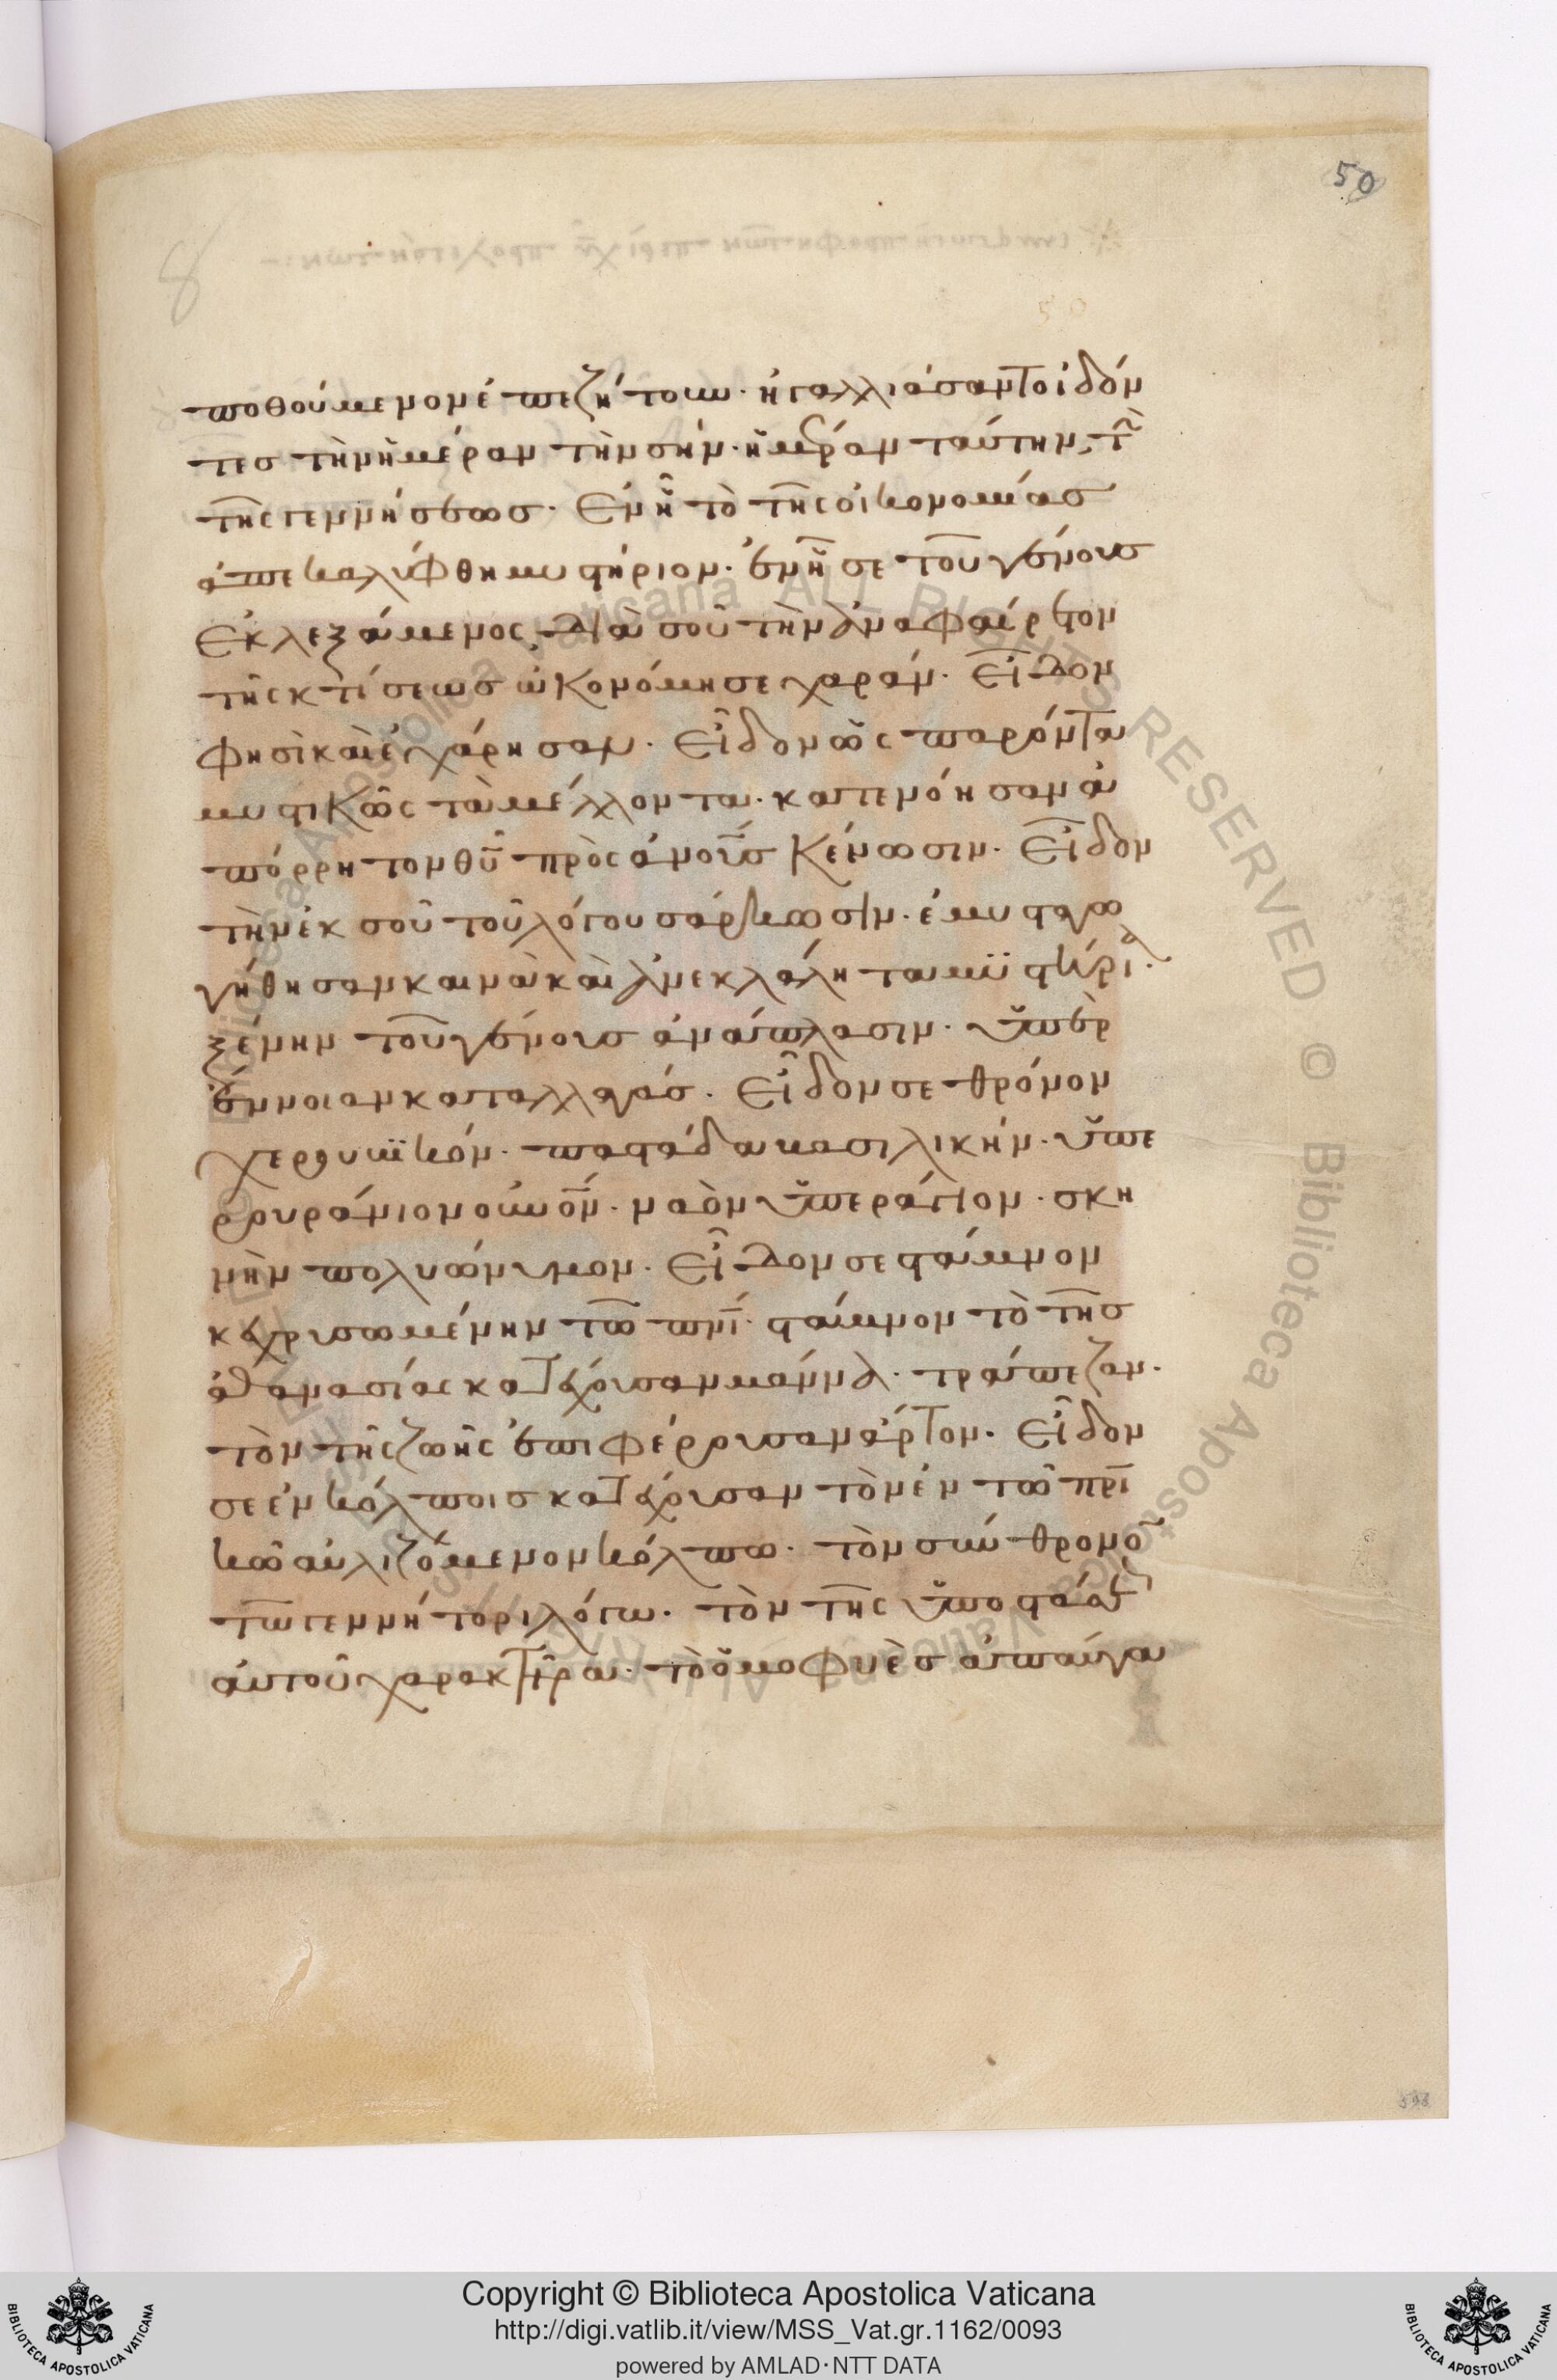 50
ποθούμενον ἐπεζήτουν. ἠγαλλιάσαντο ἰδόν
τες τὴν ἡμέραν τὴν σήν. ἡμέραν ταύτην, τὴν
τῆς γεννήσεως. Ἐν ᾗ τὸ τῆς οἰκονομίας
ἀπεκαλύφθη μυστήριον. ἐν ᾗ σε τοῦ γένους
ἐκλεξάμενος διὰ σοῦ τὴν ἀναφαίρετον
τῆς κτίσεως ὠκονόμησε χαράν. Εἶδον
φησὶ καὶ ἐχάρησαν. Εἶδον ὡς παρόντα
μυστικῶς τὰ μέλλοντα. κατενόησαν ἀ
πόρρητον θῦ πρὸς ἀνους κένωσιν. Εἶδον
τὴν ἐκ σοῦ τοῦ λόγου σάρκωσιν. ἐμυσταγω
γήθησαν καινὰ καὶ ἀνεκλάλητα μυστήρια.
ξένην τοῦ γένους ἀνάπλασιν. ὑπὲρ
ἔννοιαν καταλλαγάς. Εἶδον σε θρόνον
χερουβικόν. παστάδα βασιλικήν. ὑπε
ρουράνιον οὐνόν. ναὸν ὑπεράγιον. σκη
νὴν πολυώνυμον. Εἶδον σε στάμνον
κεχρισωμένην τῶ πνι. στάμνον τὸ τῆς
ἀθανασίας κατέχουσαν μάννα. τράπεζαν.
τὸν τῆς ζωῆς ἐπιφέρουσαν ἄρτον. Εἶδον
σε ἐν κόλποις κατέχουσαν τὸν ἐν τῶ πρι
κῶ αὐλιζόμενον κόλπω. τὸν σύνθρονον
τῶ γεννήτορι λόγω. τὸν τῆς ὑποστάσεως
αὐτοῦ χαρακτῆρα. τὸ ὁμοφυὲς ἀπαύγα
Copyright © Biblioteca Apostolica Vaticana
http://digi.vatlib.it/view/MSS_Vat.gr.1162/0093
powered by AMLAD·NTT DATA
BIBLIOTECA APOSTOLICA VATICANA
BIBLIOTECA APOSTOLICA VATICANA